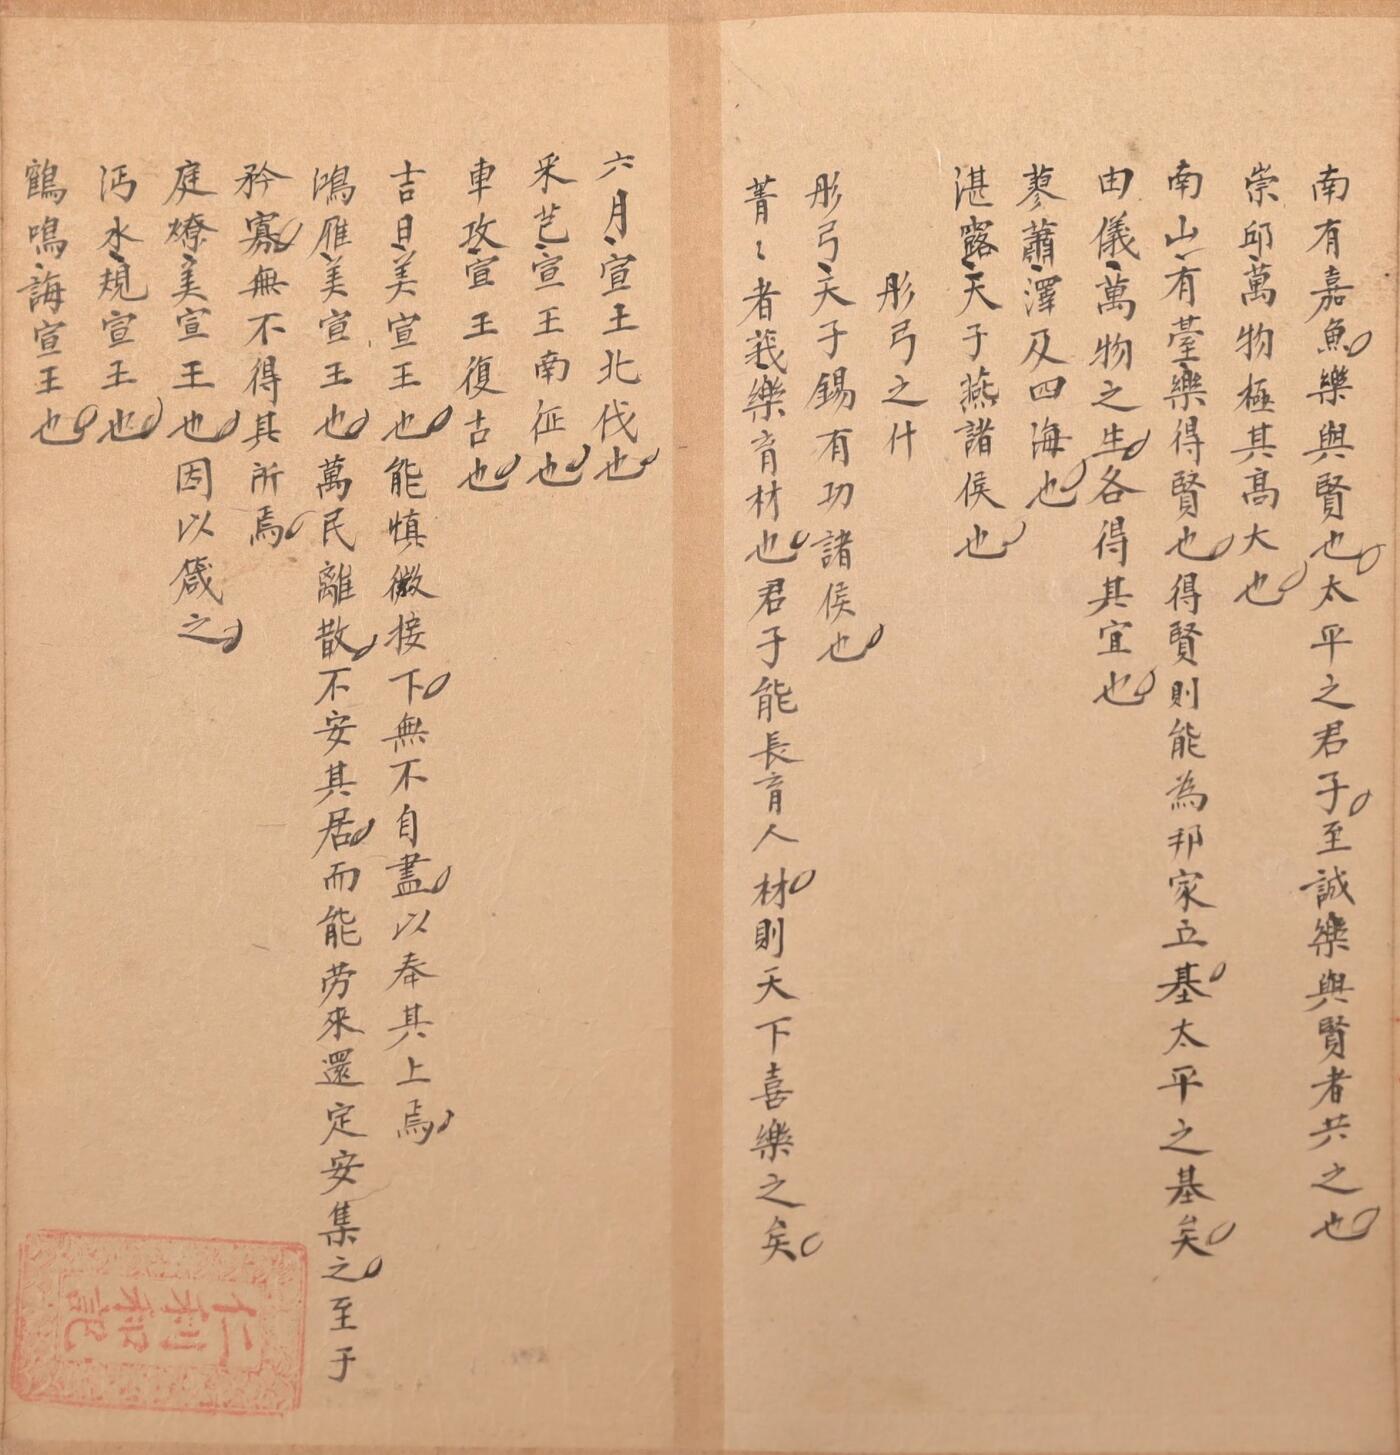 南有嘉魚樂與賢也太平之君子至誠樂與賢者共之也
崇邱萬物極其高大也
南山有薹樂得賢也得賢則能為邦家立基太平之基矣
由儀萬物之生各得其宜也
蓼蕭澤及四海也
湛露天子燕諸侯也
彤弓之什
彤弓天子錫有功諸侯也
菁〻者莪樂育材也君子能長育人材則天下喜樂之矣
六月宣王北伐也
采芑宣王南征也
車攻宣王復古也
吉日美宣王也能慎微接下無不自盡以奉其上焉
鴻雁美宣王也萬民離散不安其居而能劳來還定安集之至于
矜寡無不得其所焉
庭燎美宣王也因以箴之
沔水規宣王也
鶴鳴誨宣王也
仁利和記